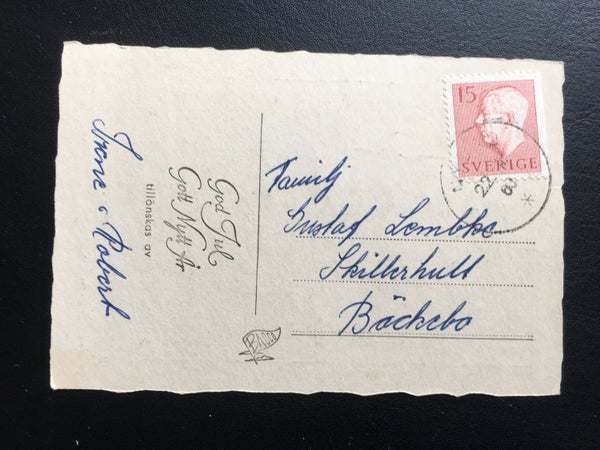 God Jul
Gott Nytt År
tillönskas av
Irene & Robert
15
SVERIGE
22
Familj
Gustaf Lembke
Skillerhult
Bäckebo